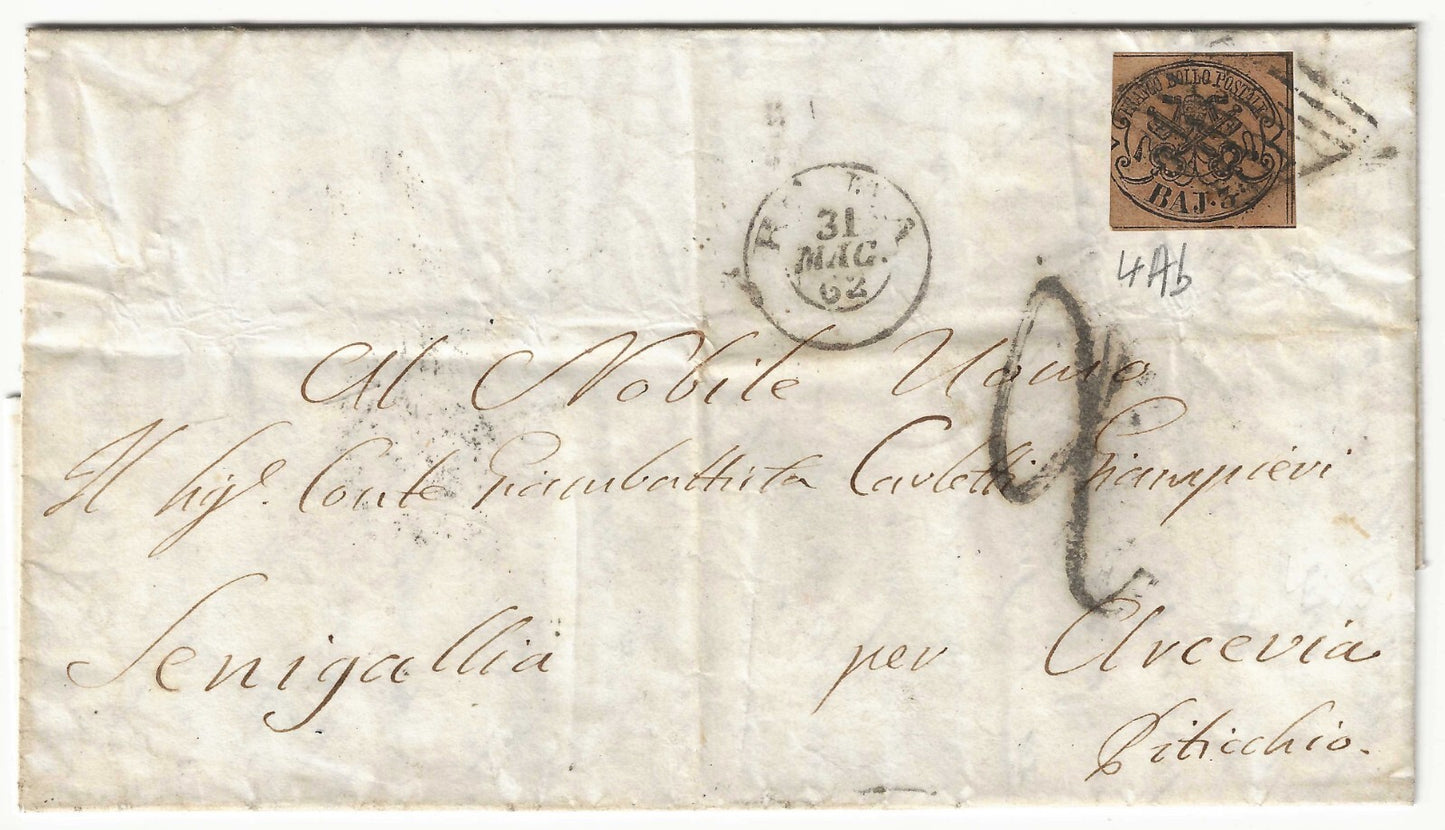 FRANCO BOLLO POSTALE
BAJ. 3
4Ab
ROMA
31
MAG.
62
2
Al Nobile Uomo
Il Sig.e Conte Giambattista Carletti Giampieri
Senigallia per Arcevia
Piticchio.